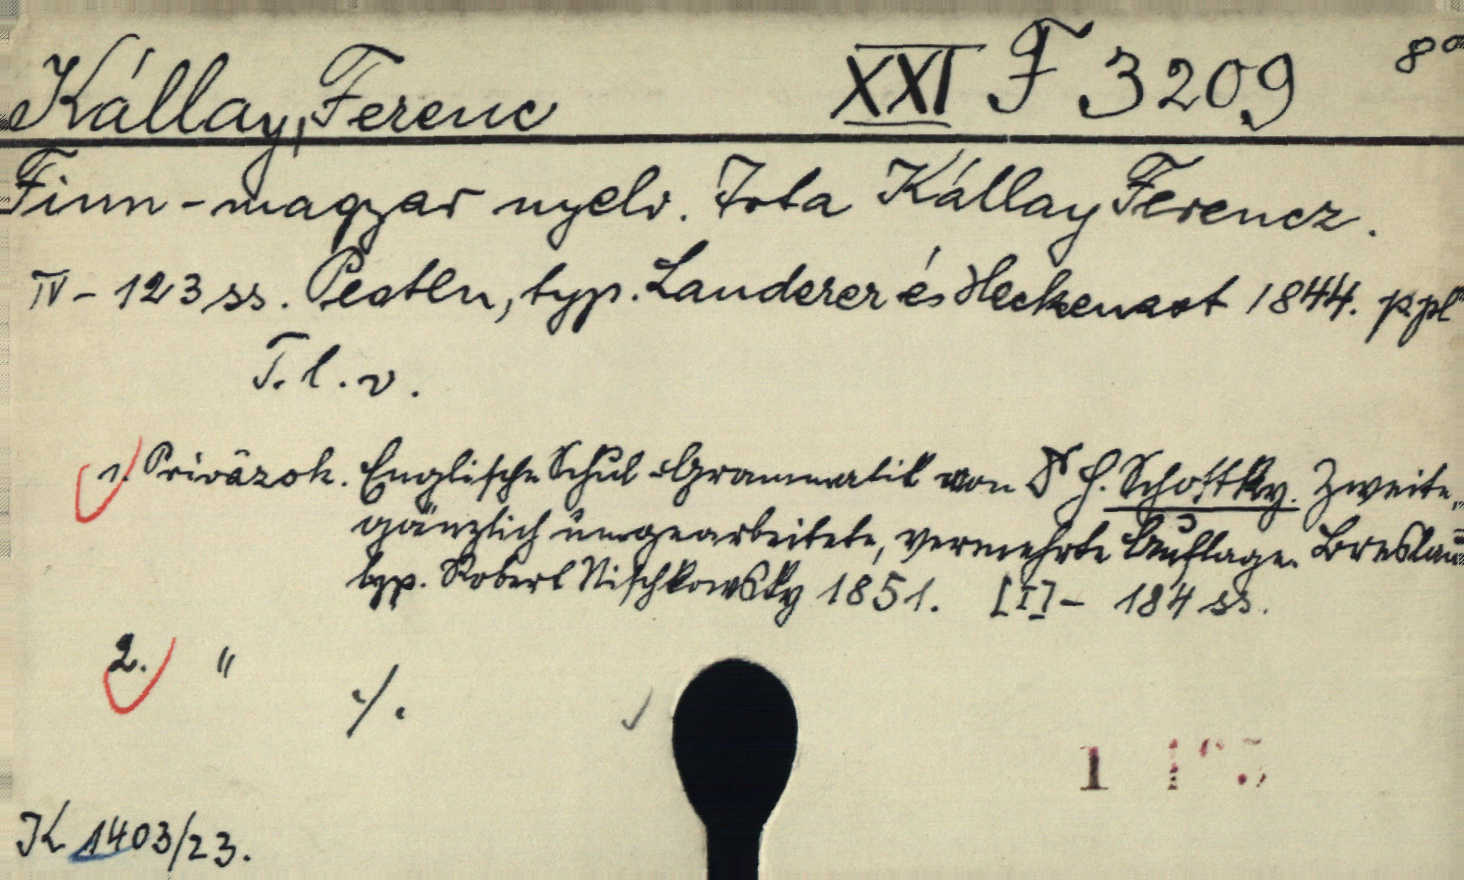 Kállay, Ferenc XXI F 3209 8°
Finn-magyar nyelv. Irta Kállay Ferencz.
IV - 123 ss. Pesten, typ. Landerer és Heckenast 1844. ppl
T. l. v.
1. Privázok. Englische Schul-Grammatik von Dr H. Schottky. Zweite,
gänzlich umgearbeitete, vermehrte Auflage. Breslau
typ. Robert Nischkowsky 1851. [I] - 184 ss.
2. "
./.
1
K 1403/23.